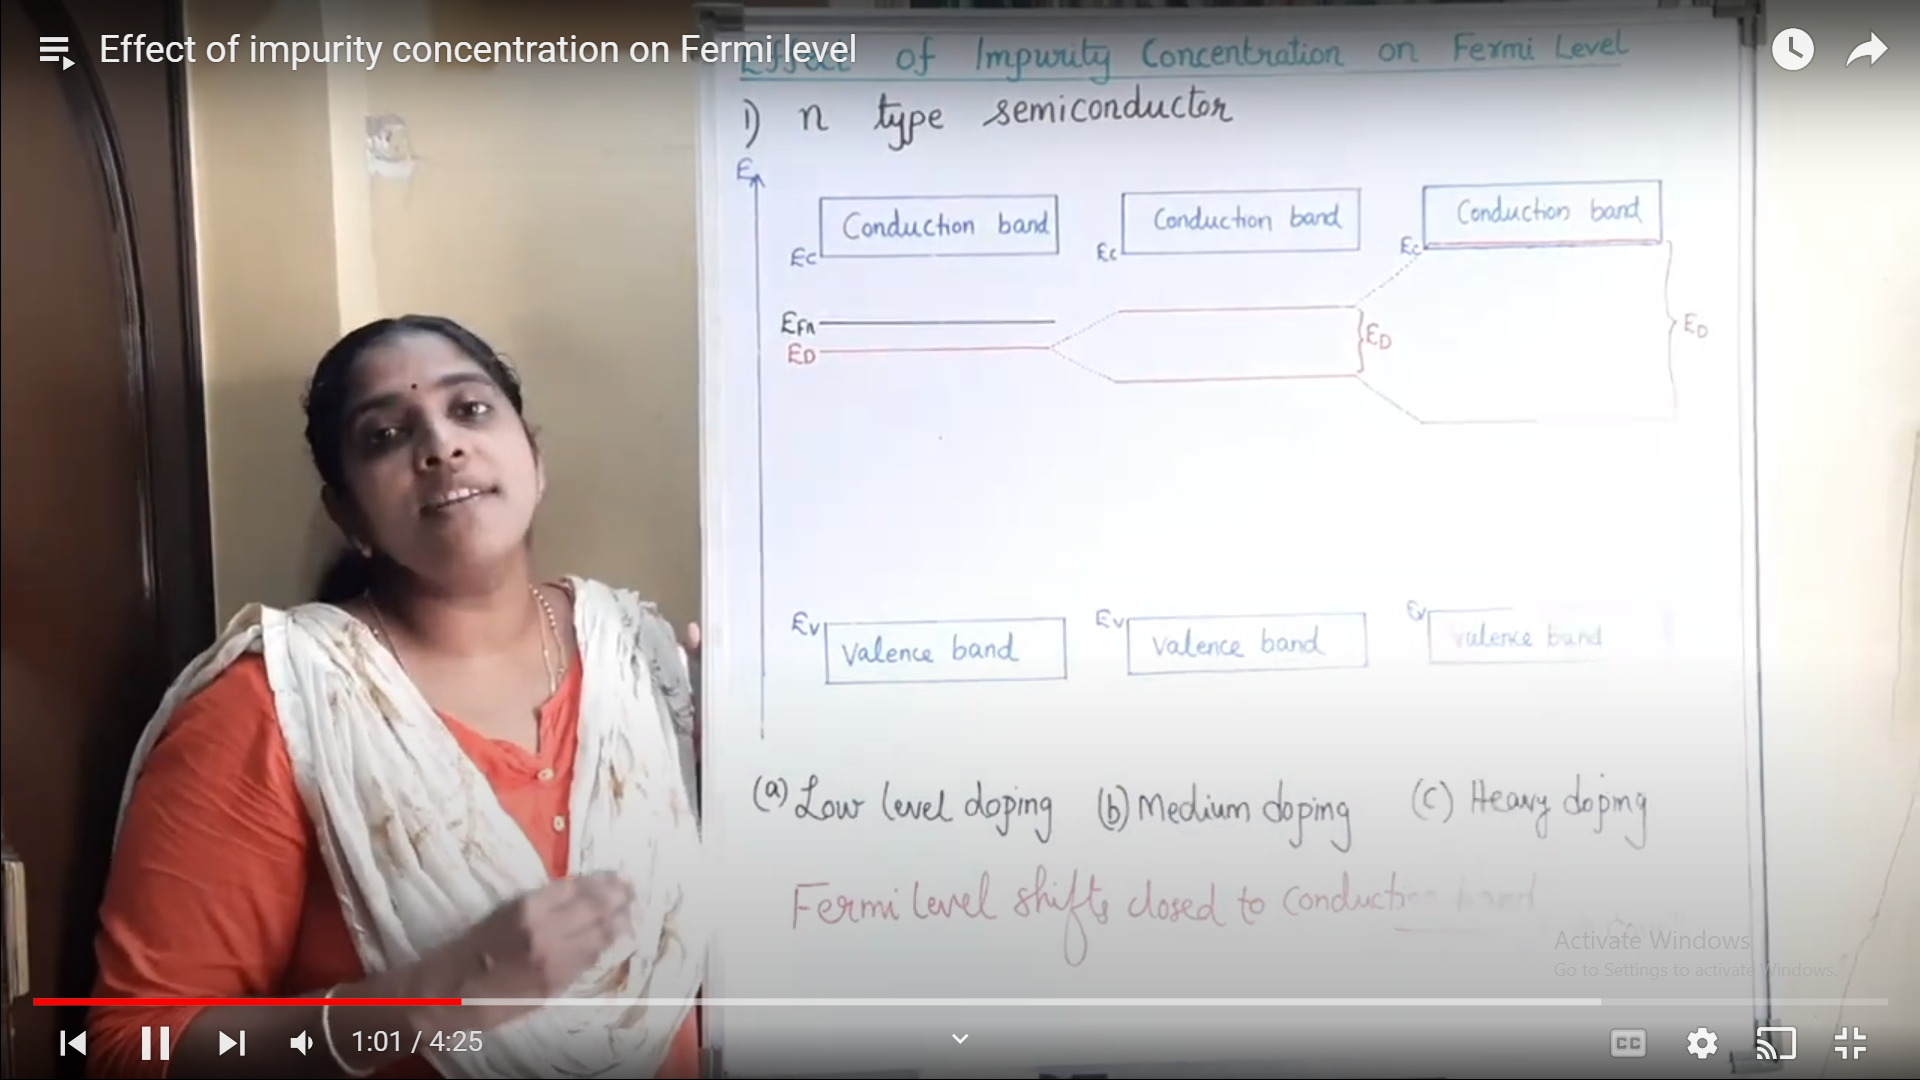 Effect of impurity concentration on Fermi level
Effect of Impurity Concentration on Fermi Level
1) n type semiconductor
E
Conduction band
Conduction band
Conduction band
Ec
Ec
Ec
EFn
ED
ED
ED
Ev
Ev
Ev
Valence band
Valence band
Valence band
(a) Low level doping (b) Medium doping (c) Heavy doping
Fermi level shifts closed to Conduction band
Activate Windows
Go to Settings to activate Windows.
1:01 / 4:25
CC